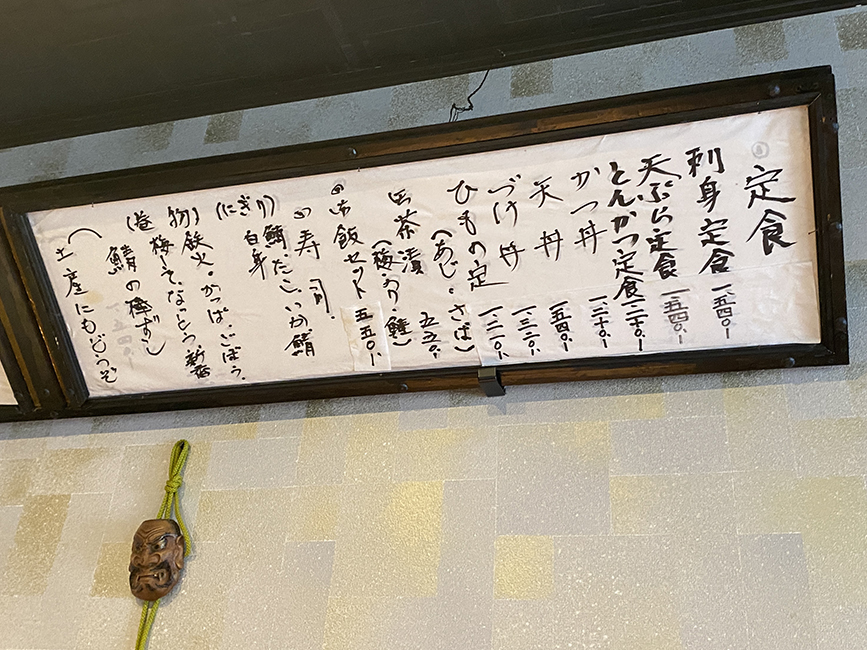 定食
刺身定食 一、五四〇、
天ぷら定食 一五四〇、
とんかつ定食 一、二一〇、
かつ丼 一、二一〇、
天丼 一五四〇、
づけ丼 一、三二〇、
ひもの定 一、二一〇、
(あじ・さば)
お茶漬 五五〇、
(梅・のり・鮭)
御飯セット 五五〇、
寿司
(にぎり) 鮪・たこ・いか・鯖
白身
(巻物) 鉄火・かっぱ・ごぼう・
梅しそ・なっとう・新香
鯖の棒ずし
(土産にもどうぞ